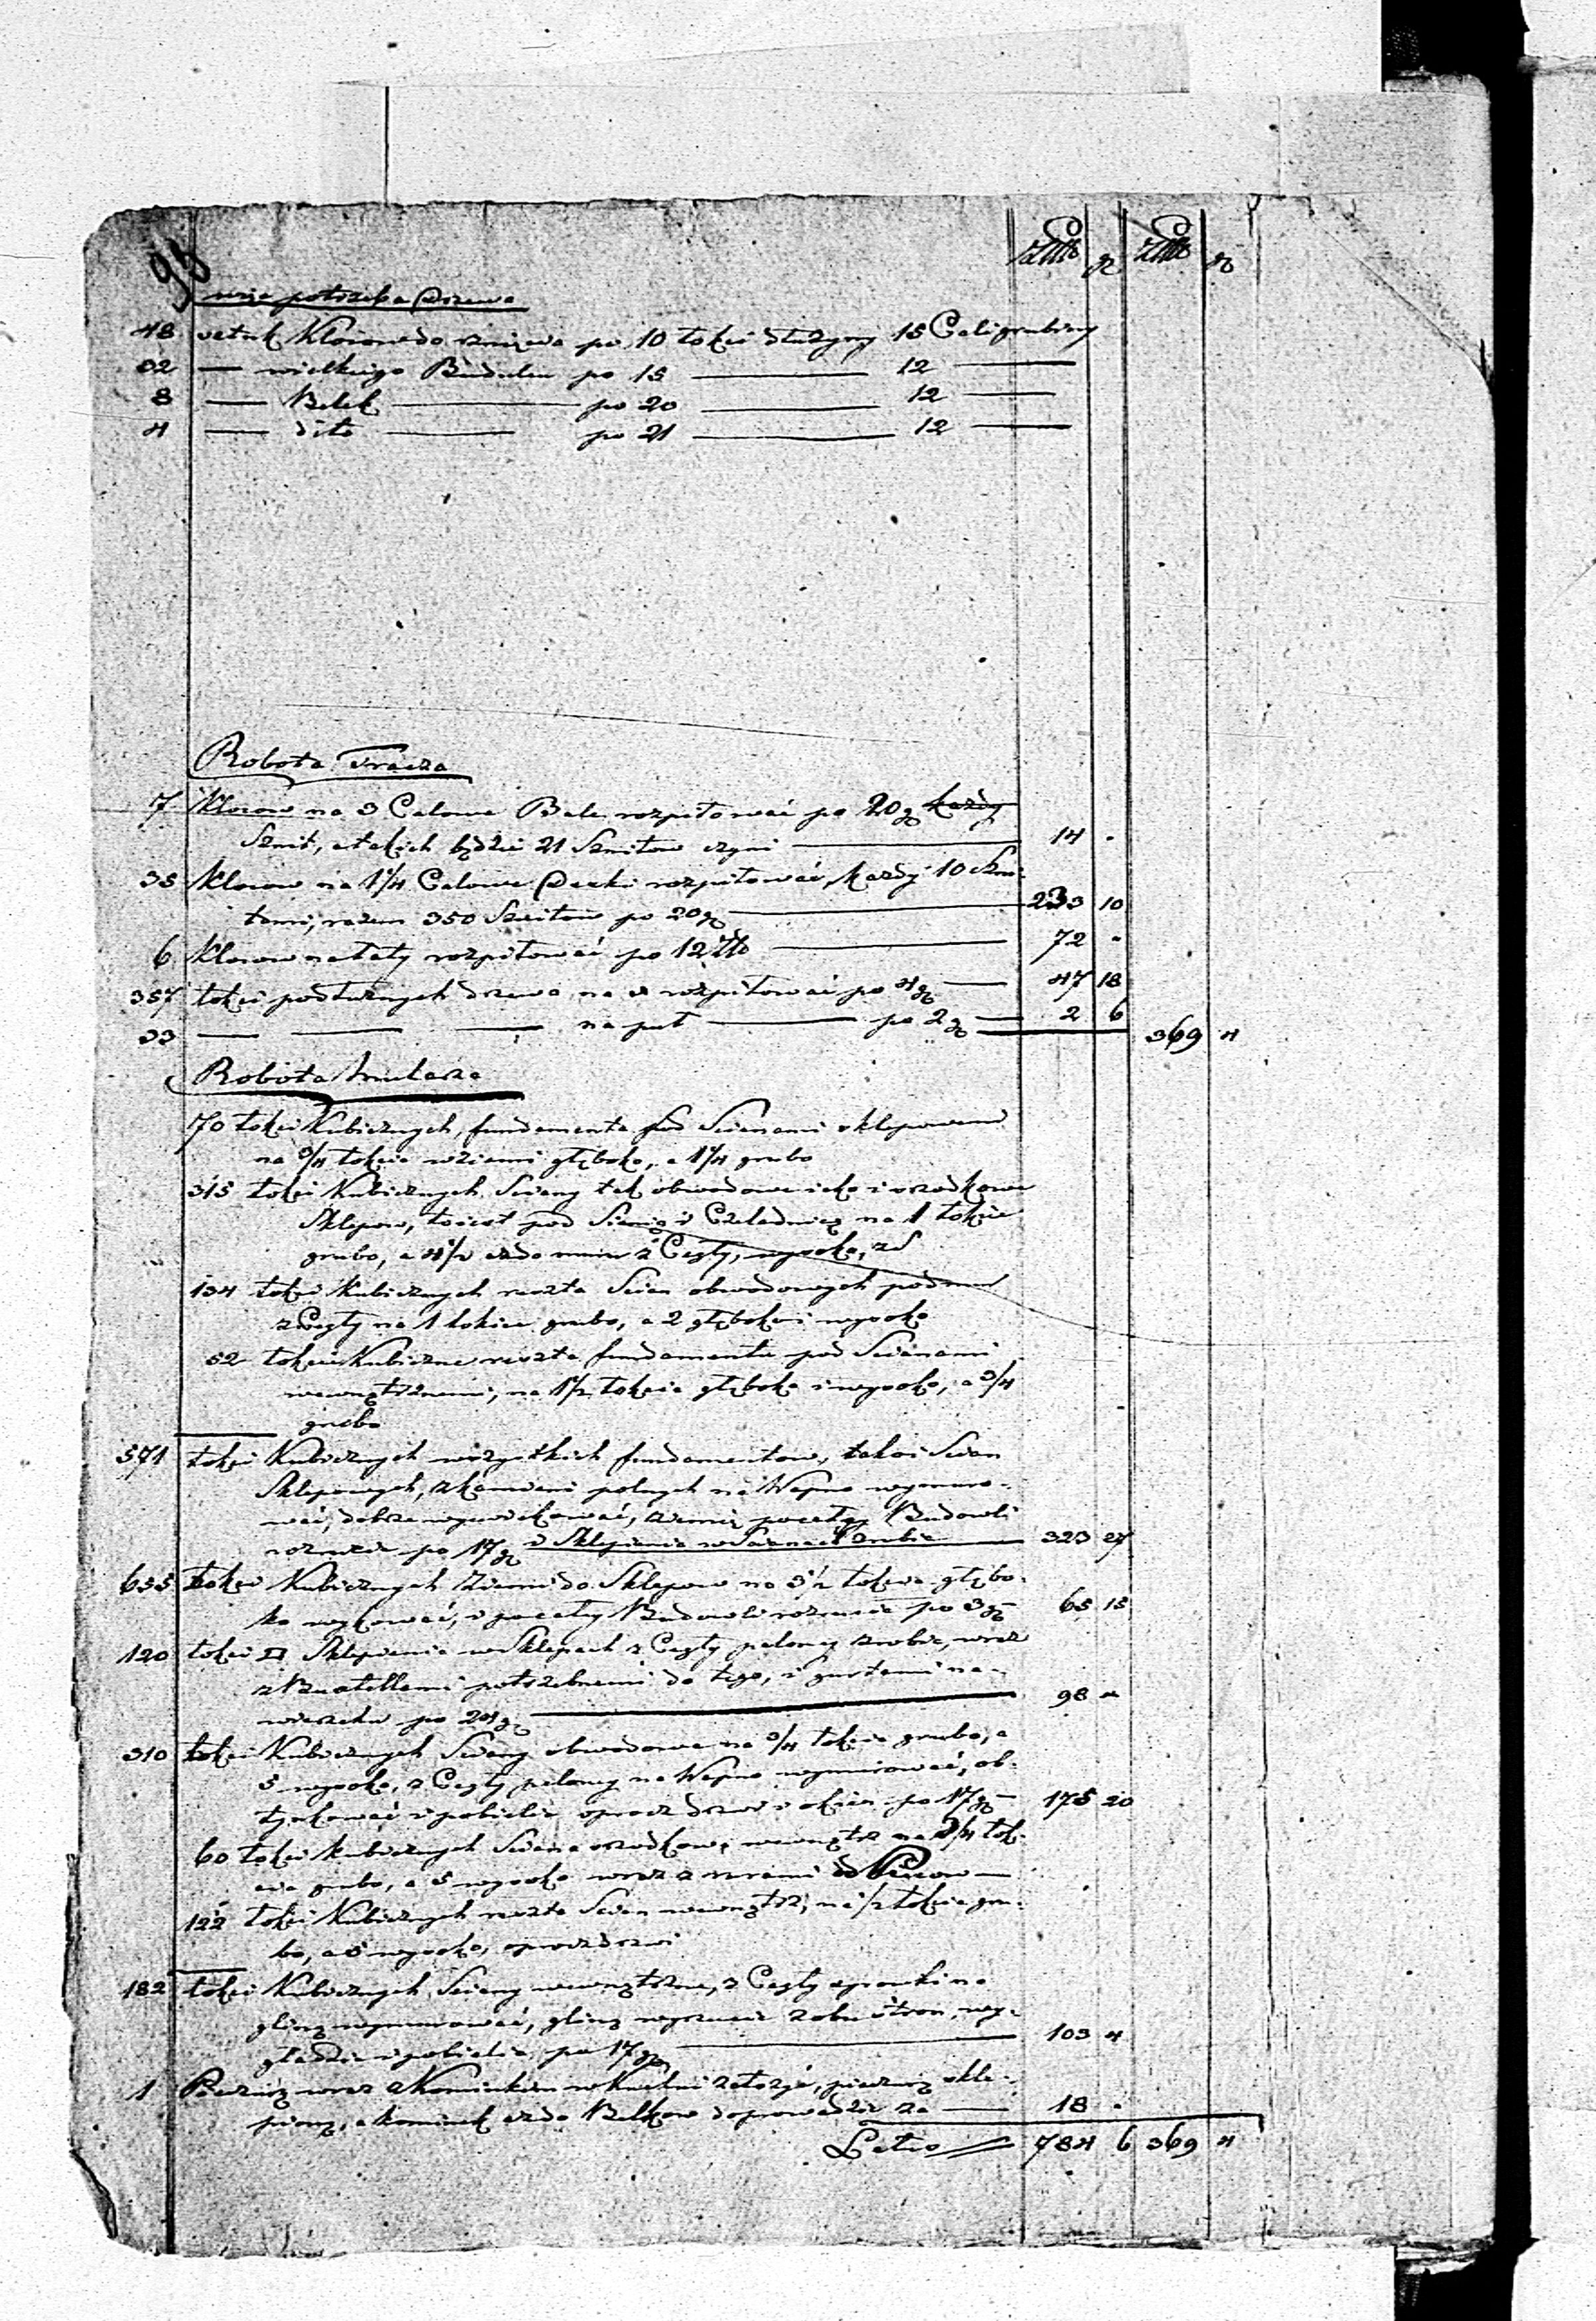 98
Złłł gr Złłł gr
potrzeba Drzewa
48 sztuk Klocow do rznięcia po 10 łokci dłużyny 15 Cali grubiny
32 — wielkiego Budulcu po 15 — 12 —
8 — Belek — po 20 — 12 —
4 — dito — po 21 — 12 —
Robota Tracza
7 Klocow na 3 Calowe Bale rozpiłować po 20 gr każdy
Sznit, a takich będzie 21 Sznitow czyni — 14 "
35 Klocow na 1 1/4 Calowe Decki rozpiłować, każdy 10 Szni-
tami, razem 350 Sznitow po 20 gr — 233 10
6 Klocow na łaty rozpiłować po 12 złł — 72 "
357 łokci podłużnych drzewa na rozpiłować po 4 gr — 47 18
33 — — — na puł — po 2 gr — 2 6
369 4
Robota Mularza
70 łokci Kubicznych, fundamenta pod Scianami sklepowemi
na 3/4 łokcia w ziemi głęboko, a 1 1/4 grubo
315 łokci Kubicznych Sciany tak obwodowe jako i srzodkowe
Sklepow, to iest pod Sienią i Czeladnicą na 1 łokieć
grubo, a 4 1/2 aż do muru z Cegły, wysoko, zaś
134 łokci Kubicznych reszta Scian obwodowych podmur
z Cegły na 1 łokieć grubo, a 2 głęboko i wysoko
52 łokcie Kubiczne reszta fundamentu pod Scianami
wewnętrznemi, na 1 1/2 łokcia głęboko i wysoko, a 3/4
grubo
571 łokci Kubicznych wszystkich fundamentow, tako i Scian
Sklepowych, z kamieni polnych na Wapno wymuro-
wać, dobrze wyćwikować, ziemię po całey Budowli
rozrzucić po 17 gr i Sklepienia — 323 27
655 łokci Kubicznych Ziemi do Sklepow na 3 1/2 łokcia głębo-
ko wykować, i po całey Budowli rozrzucić po 3 gr — 65 15
120 łokci □ Sklepienia w Sklepach z Cegły paloney zrobić, wraz
z Buxtellami potrzebnemi do tego, i gurtami na
wierzchu po 24 gr — 98 "
310 łokci Kubicznych Sciany obwodowe na 3/4 łokcia grubo, a
5 wysoko, z Cegły paloney na Wapno wymurować, ob-
tynkować i pobielić oprocz drzwi i okien po 17 gr — 175 20
60 łokci kubicznych Sciana srzodkowa wewnątrz na 3/4 łok-
cia grubo, a 5 wysoko wraz z murami od Piecow —
122 łokci Kubicznych reszta Scian wewnątrz, na 1/2 łokcia gru-
bo, a 5 wysoko, oprocz drzwi
182 łokci Kubicznych Sciany wewnętrzne, z Cegły na
glinę wymurować, gliną wyrzucić z obu stron, wy-
gładzić i pobielić po 17 gr — 103 4
1 Piecznią wraz z Kominkiem w Kuchni założyć, sle-
pioną, a kominek aż do Belkow doprowadzić za — 18 "
Latus 784 6 369 4